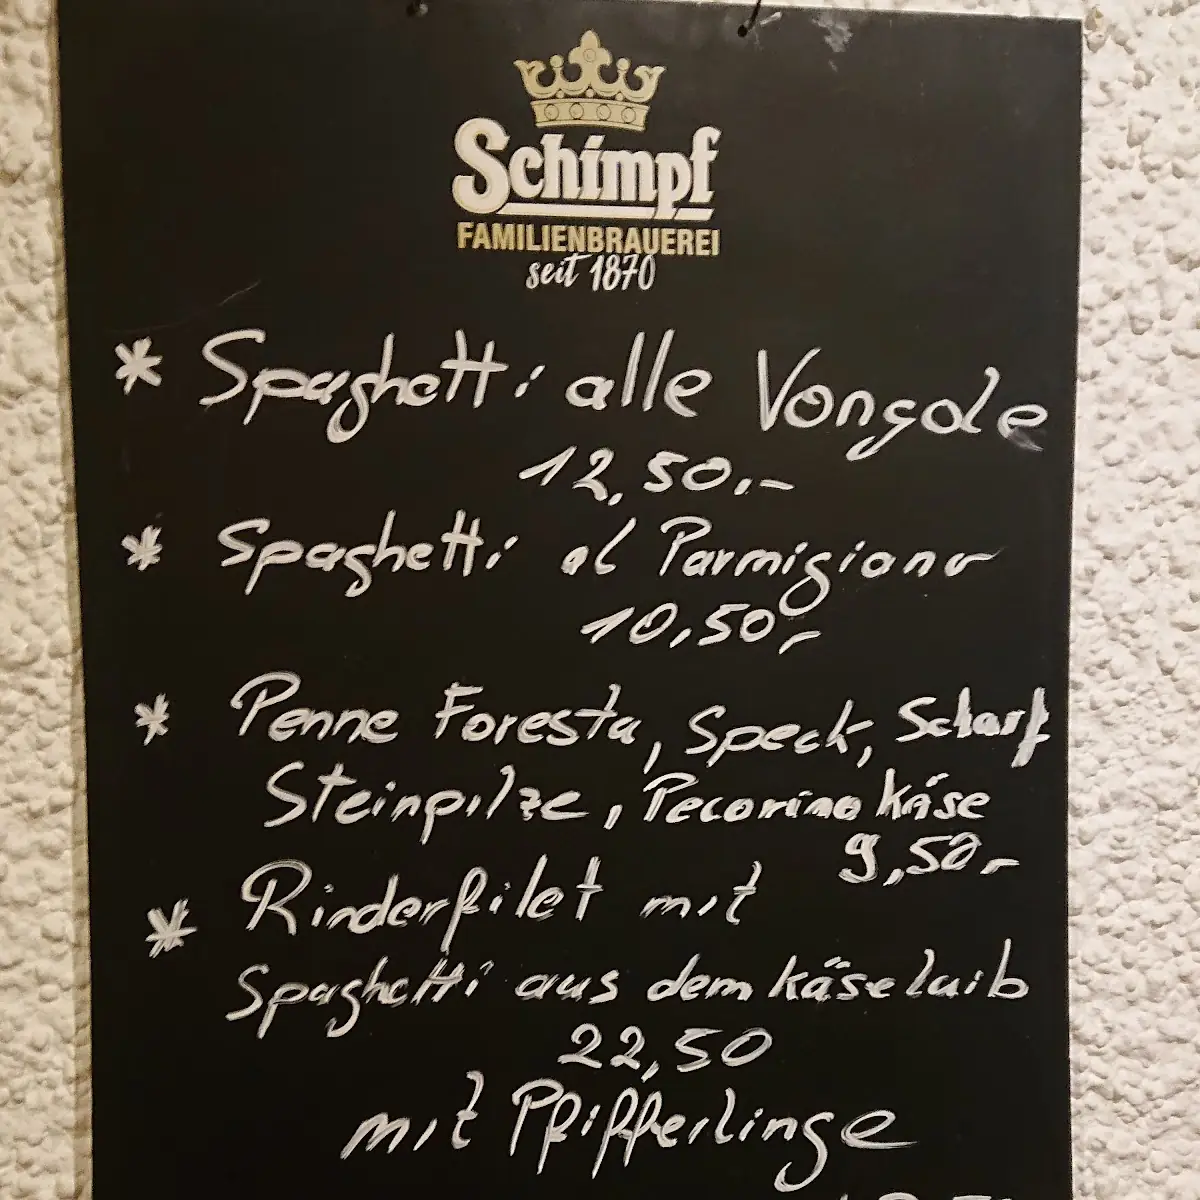 Schimpf
FAMILIENBRAUEREI
seit 1870
* Spaghetti alle Vongole
12,50.-
* Spaghetti al Parmigiano
10,50,-
* Penne Foresta, Speck, Scharf
Steinpilze, Pecorino Käse
9,50,-
* Rinderfilet mit
Spaghetti aus dem Käselaib
22,50
mit Pfifferlinge